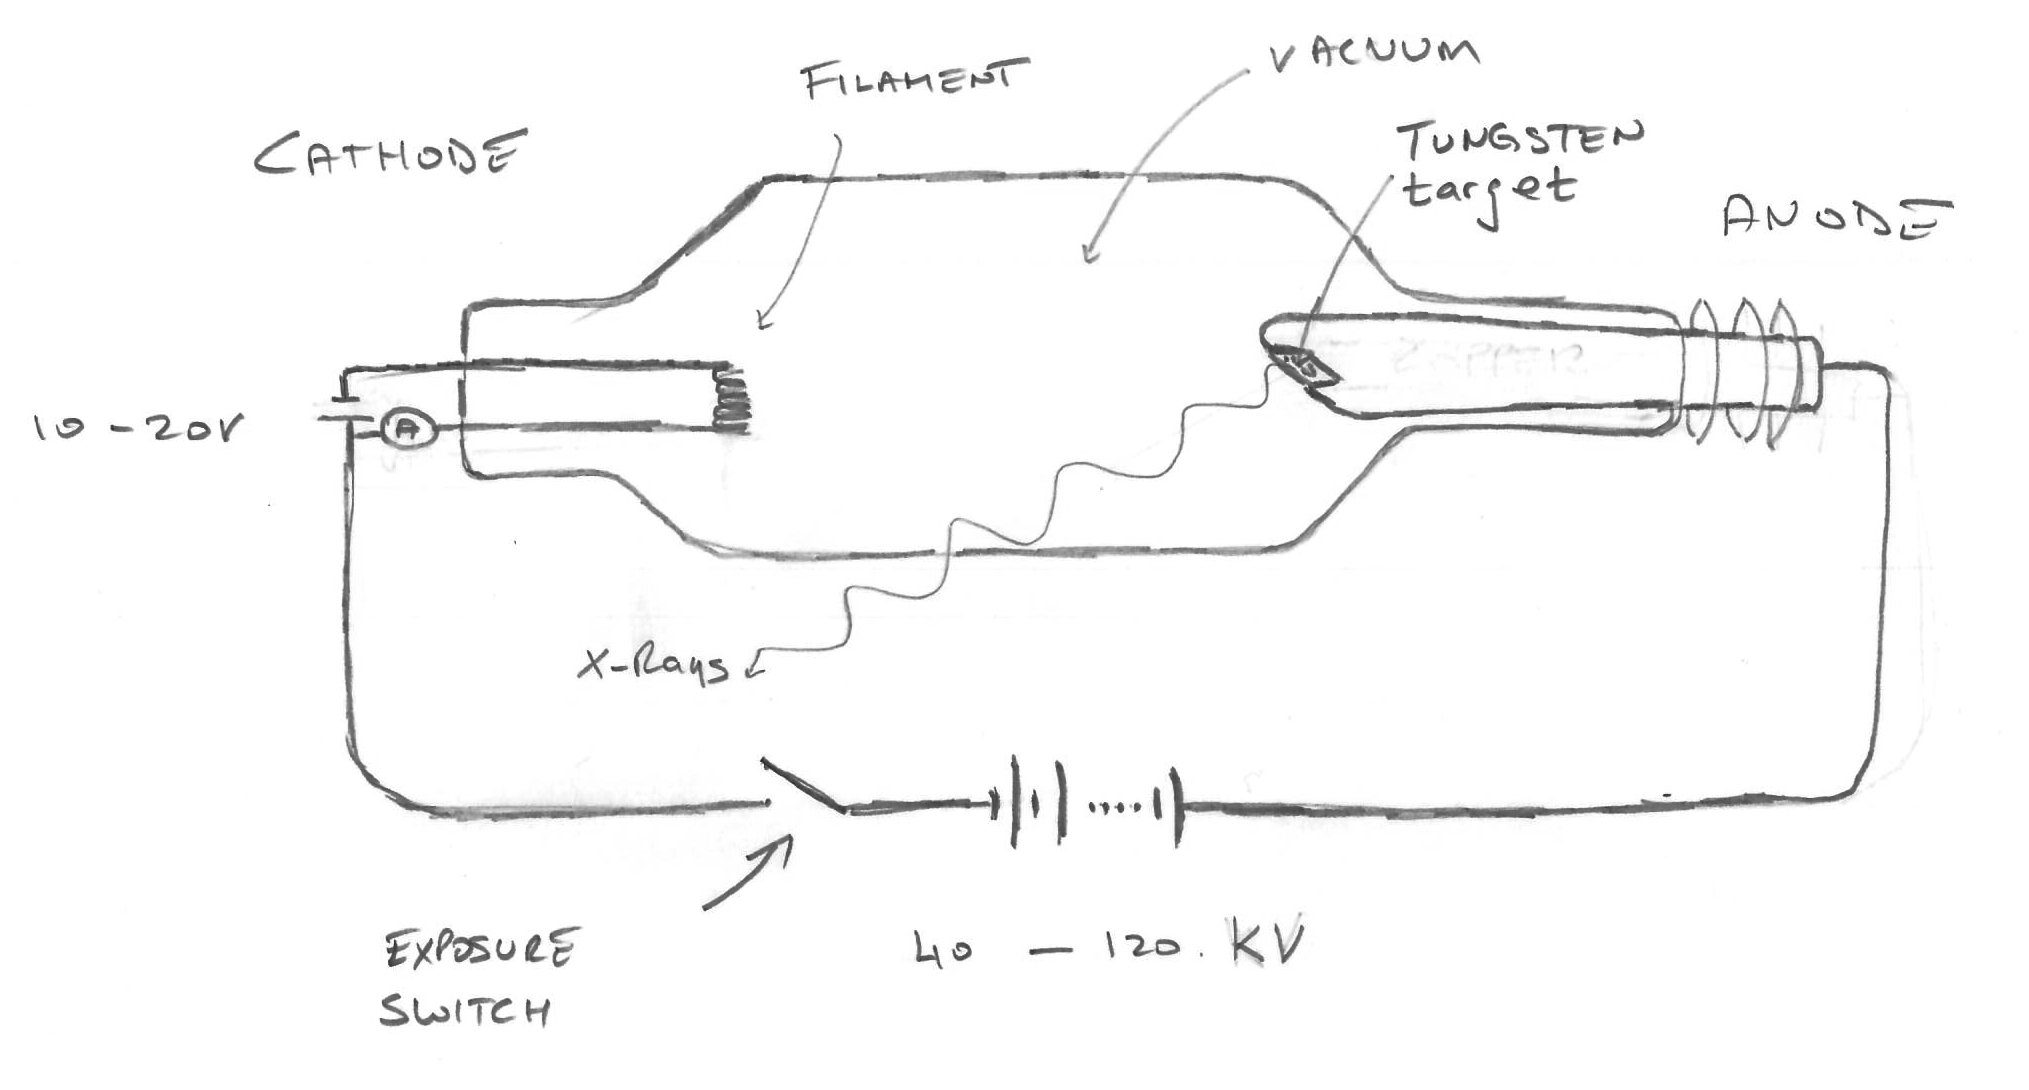 FILAMENT
VACUUM
CATHODE
TUNGSTEN
target
ANODE
10-20V
A
X-Rays
EXPOSURE
SWITCH
40 - 120. KV